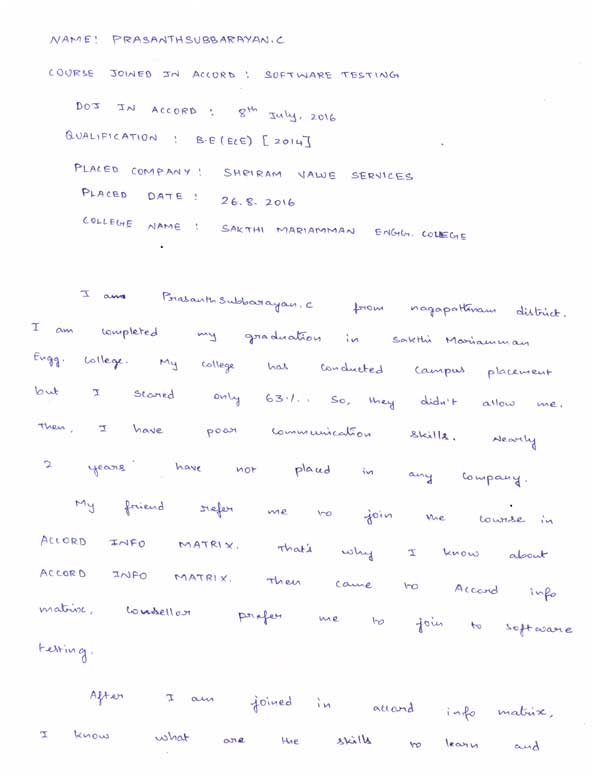 NAME: PRASANTHSUBBARAYAN.C
COURSE JOINED IN ACCORD : SOFTWARE TESTING
DOJ IN ACCORD : 8th July, 2016
QUALIFICATION : B.E (ECE) [2014]
PLACED COMPANY : SHRIRAM VALUE SERVICES
PLACED DATE : 26.8.2016
COLLEGE NAME : SAKTHI MARIAMMAN ENGG. COLLEGE
I am PrasanthSubbarayan.C from nagapattinam district.
I am completed my graduation in Sakthi Mariamman
Engg. College. My college has conducted campus placement
but I scored only 63%. So, they didn't allow me.
Then, I have poor communication skills. Nearly
2 years have not placed in any company.
My friend refer me to join the course in
ACCORD INFO MATRIX. That's why I know about
ACCORD INFO MATRIX. Then came to Accord info
matrix, Counsellor prefer me to join to software
testing.
After I am joined in accord info matrix,
I know what are the skills to learn and